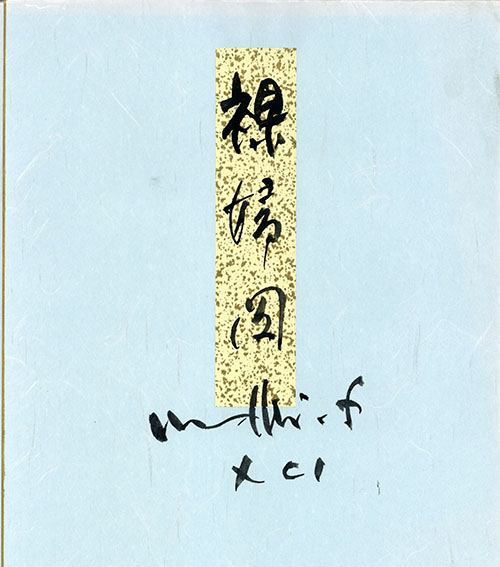 裸婦図
XCI